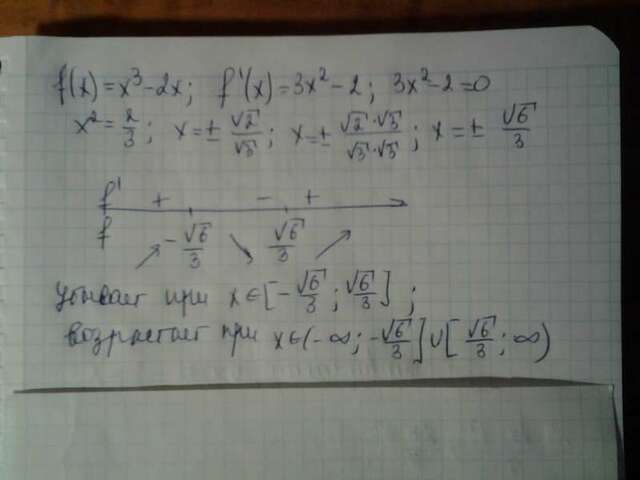 f(x)=x³-2x; f'(x)=3x²-2; 3x²-2=0
x²=2/3; x=±√2/√3; x=±√2·√3/√3·√3; x=±√6/3
f' + - +
f -√6/3 √6/3
убывает при x∈[-√6/3; √6/3];
возрастает при x∈(-∞; -√6/3]∪[√6/3; ∞)